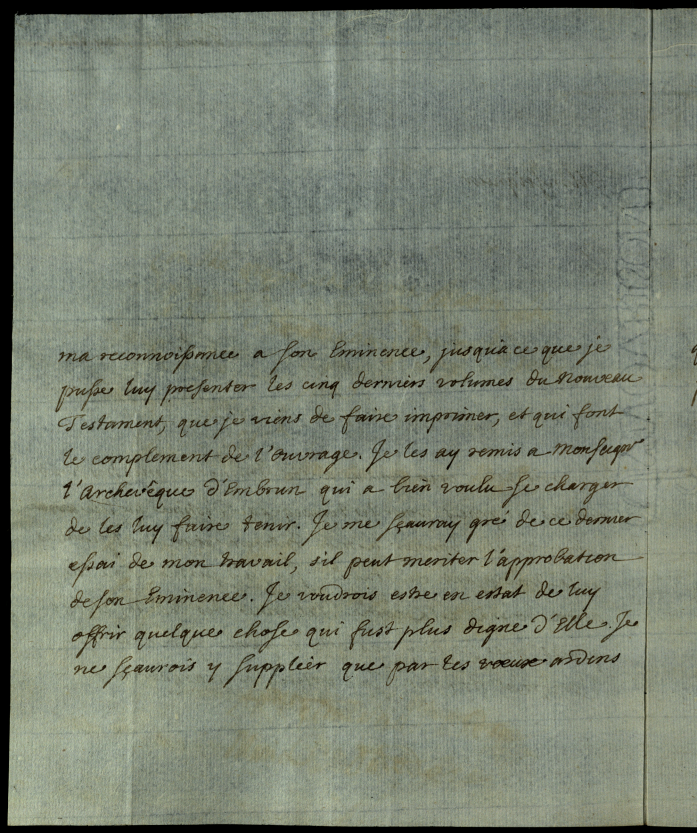 ma reconnoissance a son Eminence, jusqu'a ce que je
pusse luy presenter les cinq derniers volumes du Nouveau
Testament, que je viens de faire imprimer, et qui font
le complement de l'ouvrage. Je les ay remis a Monseigr
l'Archevêque d'Embrun qui a bien voulu se charger
de les luy faire tenir. Je me sçauray gré de ce dernier
essai de mon travail, s'il peut meriter l'approbation
de son Eminence. Je voudrois estre en estat de luy
offrir quelque chose qui fust plus digne d'Elle. Je
ne sçaurois y suppléer que par les vœux ardens